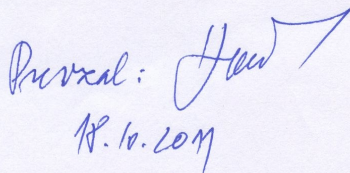 Prevzal:
18.10.2011